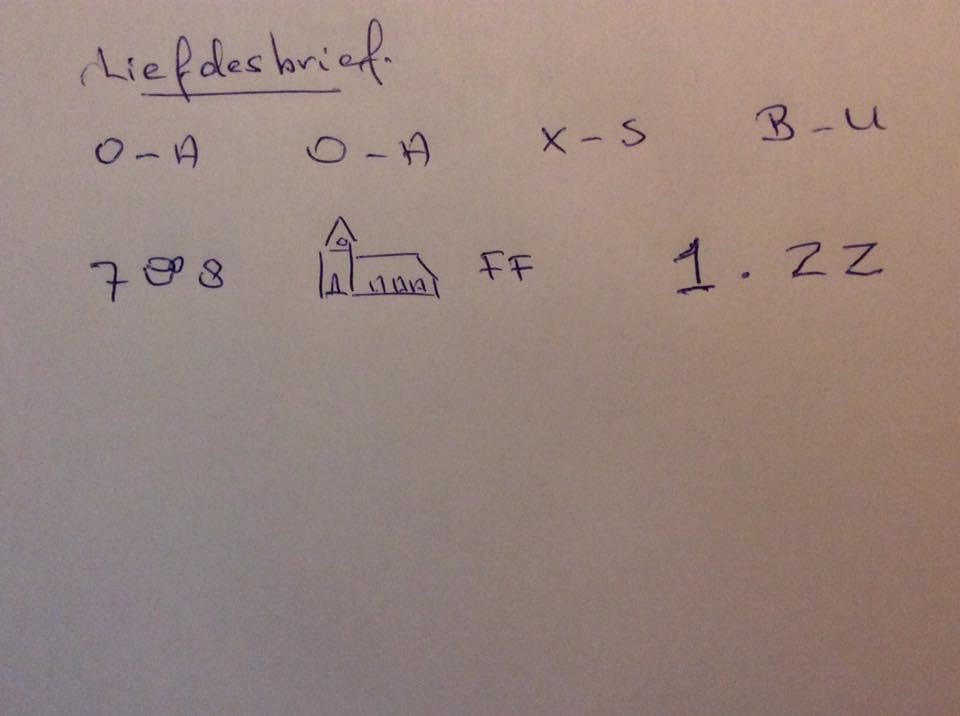 Liefdesbrief.
O-A O-A X-S B-U
7 8 FF 1.ZZ